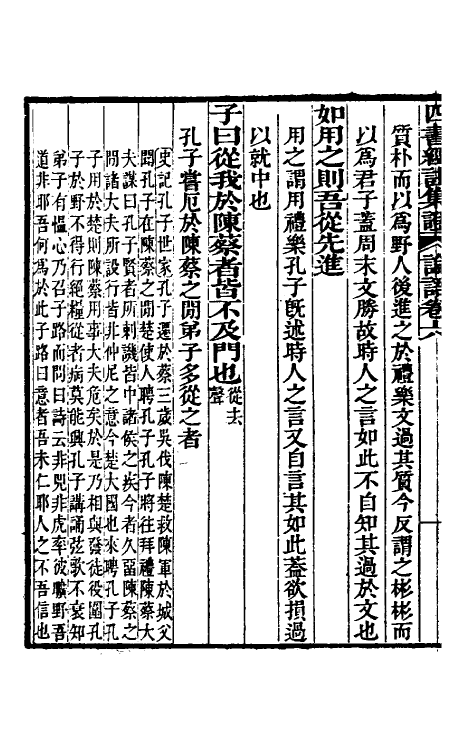 四書經註集證 論語卷六 一
質朴而以爲野人後進之於禮樂文過其質今反謂之彬彬而
以爲君子葢周末文勝故時人之言如此不自知其過於文也
如用之則吾從先進
用之謂用禮樂孔子旣述時人之言又自言其如此葢欲損過
以就中也
子曰從我於陳蔡者皆不及門也從去聲
孔子嘗厄於陳蔡之閒弟子多從之者
史記孔子世家孔子遷於蔡三歲吳伐陳楚救陳軍於城父
聞孔子在陳蔡之閒楚使人聘孔子孔子將往拜禮陳蔡大
夫謀曰孔子賢者所刺譏皆中諸侯之疾今者久留陳蔡之
閒諸大夫所設行皆非仲尼之意今楚大國也來聘孔子孔
子用於楚則陳蔡用事大夫危矣於是乃相與發徒役圍孔
子於野不得行絕糧從者病莫能興孔子講誦弦歌不衰知
弟子有慍心乃召子路而問曰詩云非兕非虎率彼曠野吾
道非耶吾何爲於此子路曰意者吾未仁耶人之不吾信也